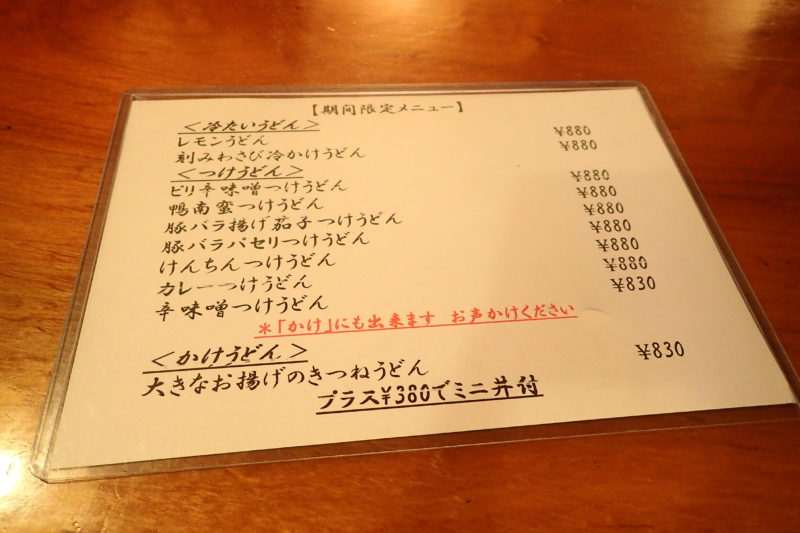 【期間限定メニュー】
＜冷たいうどん＞
レモンうどん ¥880
刻みわさび冷かけうどん ¥880
＜つけうどん＞
ピリ辛味噌つけうどん ¥880
鴨南蛮つけうどん ¥880
豚バラ揚げ茄子つけうどん ¥880
豚バラパセリつけうどん ¥880
けんちんつけうどん ¥880
カレーつけうどん ¥880
辛味噌つけうどん ¥830
＊「かけ」にも出来ます お声かけください
＜かけうどん＞
大きなお揚げのきつねうどん ¥830
プラス¥380でミニ丼付